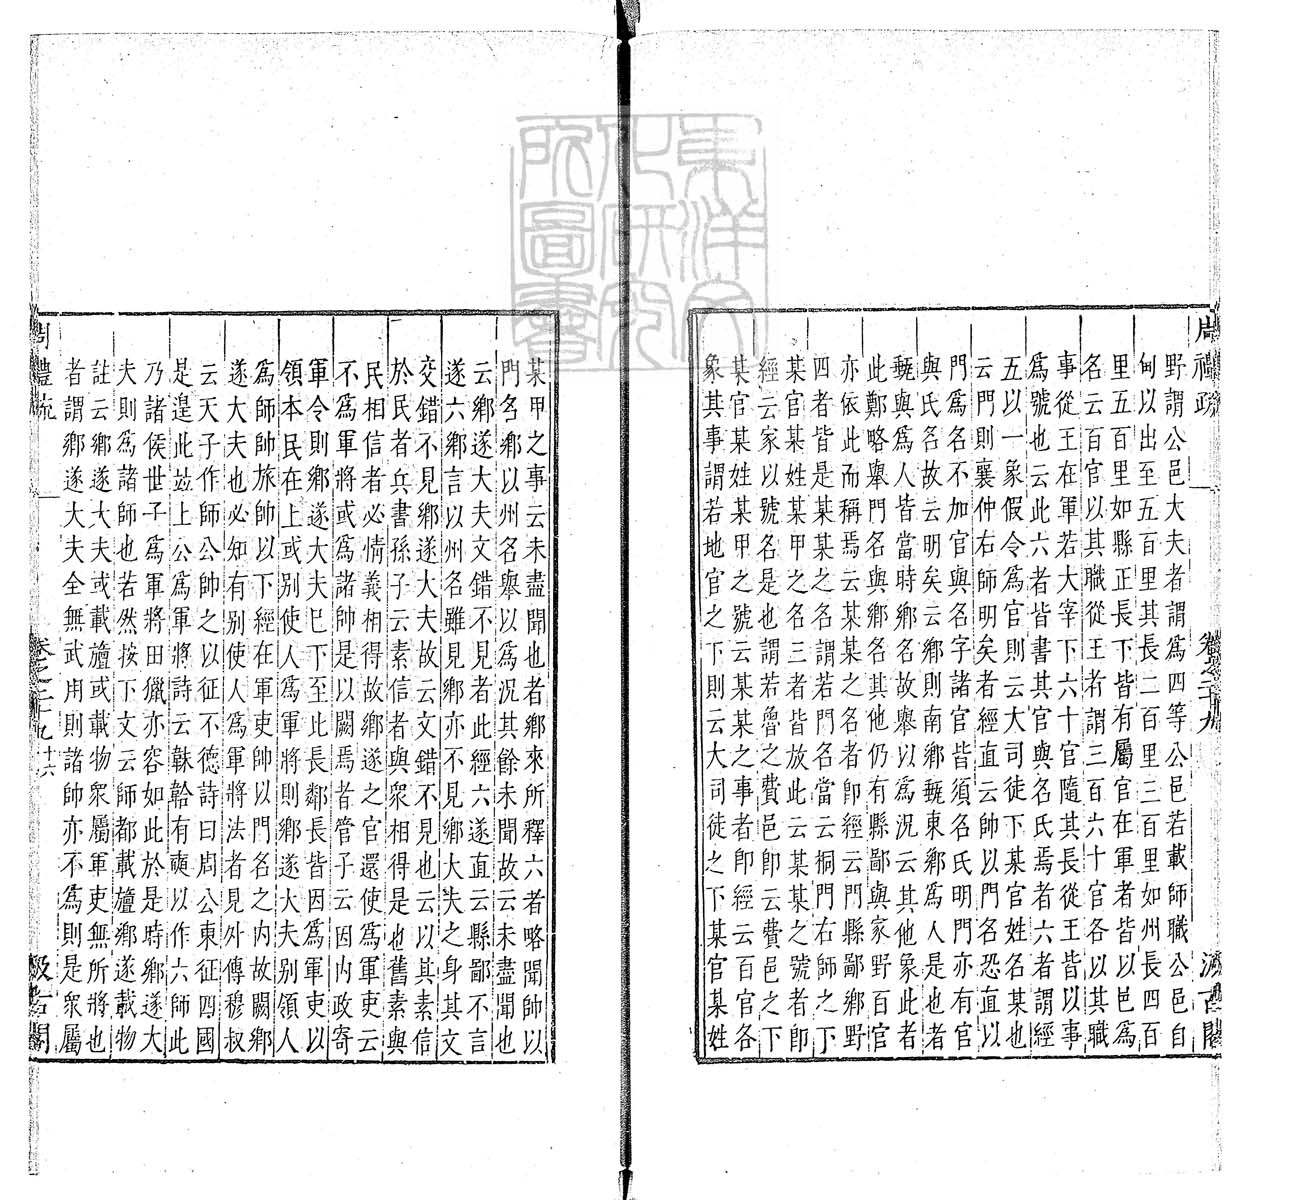 周禮疏 卷之二十九 汲古閣
野謂公邑大夫者謂爲四等公邑若載師職公邑自
甸以出至五百里其長二百里三百里如州長四百
里五百里如縣正長下皆有屬官在軍者皆以邑爲
名云百官以其職從王者謂三百六十官各以其職
事從王在軍若大宰下六十官隨其長從王皆以事
爲號也云此六者皆書其官與名氏焉者六者謂經
五以一象假令爲官則云大司徒下某官姓名某也
云門則襄仲右師明矣者經直云帥以門名恐直以
門爲名不加官與名字諸官皆須名氏明門亦有官
與氏名故云明矣云鄉則南鄉甀東鄉爲人是也者
甀與爲人皆當時鄉名故舉以爲況云其他象此者
此鄭略舉門名與鄉名其他仍有縣鄙與家野百官
亦依此而稱焉云某某之名者卽經云門縣鄙鄉野
四者皆是某某之名謂若門名當云桐門右師之下
某官某姓某甲之名三者皆放此云某某之號者卽
經云家以號名是也謂若魯之費邑卽云費邑之下
某官某姓某甲之號云某某之事者卽經云百官各
象其事謂若地官之下則云大司徒之下某官某姓
某甲之事云未盡聞也者鄉來所釋六者略聞帥以
門名鄉以州名舉以爲況其餘未聞故云未盡聞也
云鄉遂大夫文錯不見者此經六遂直云縣鄙不言
遂六鄉言以州名雖見鄉亦不見鄉大夫之身其文
交錯不見鄉遂大夫故云文錯不見也云以其素信
於民者兵書孫子云素信者與衆相得是也舊素與
民相信者必情義相得故鄉遂之官還使爲軍吏云
不爲軍將或爲諸帥是以闕焉者管子云因內政寄
軍令則鄉遂大夫已下至比長鄰長皆因爲軍吏以
領本民在上或別使人爲軍將則鄉遂大夫別領人
爲師帥旅帥以下經在軍吏帥以門名之內故闕鄉
遂大夫也必知有別使人爲軍將法者見外傳穆叔
云天子作師公帥之以征不德詩曰周公東征四國
是遑此竝上公爲軍將詩云韎韐有奭以作六師此
乃諸侯世子爲軍將田獵亦容如此於是時鄉遂大
夫則爲諸師也若然按下文云師都載旜鄉遂載物
註云鄉遂大夫或載旜或載物衆屬軍吏無所將也
者謂鄉遂大夫全無武用則諸師亦不爲則是衆屬
周禮疏 卷之二十九 十六 汲古閣
東洋文化研究所圖書